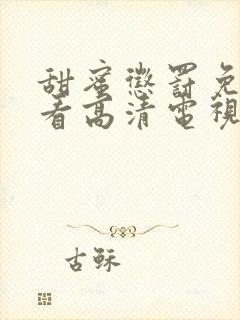 甜蜜懲罰免
看高清電視
古穌